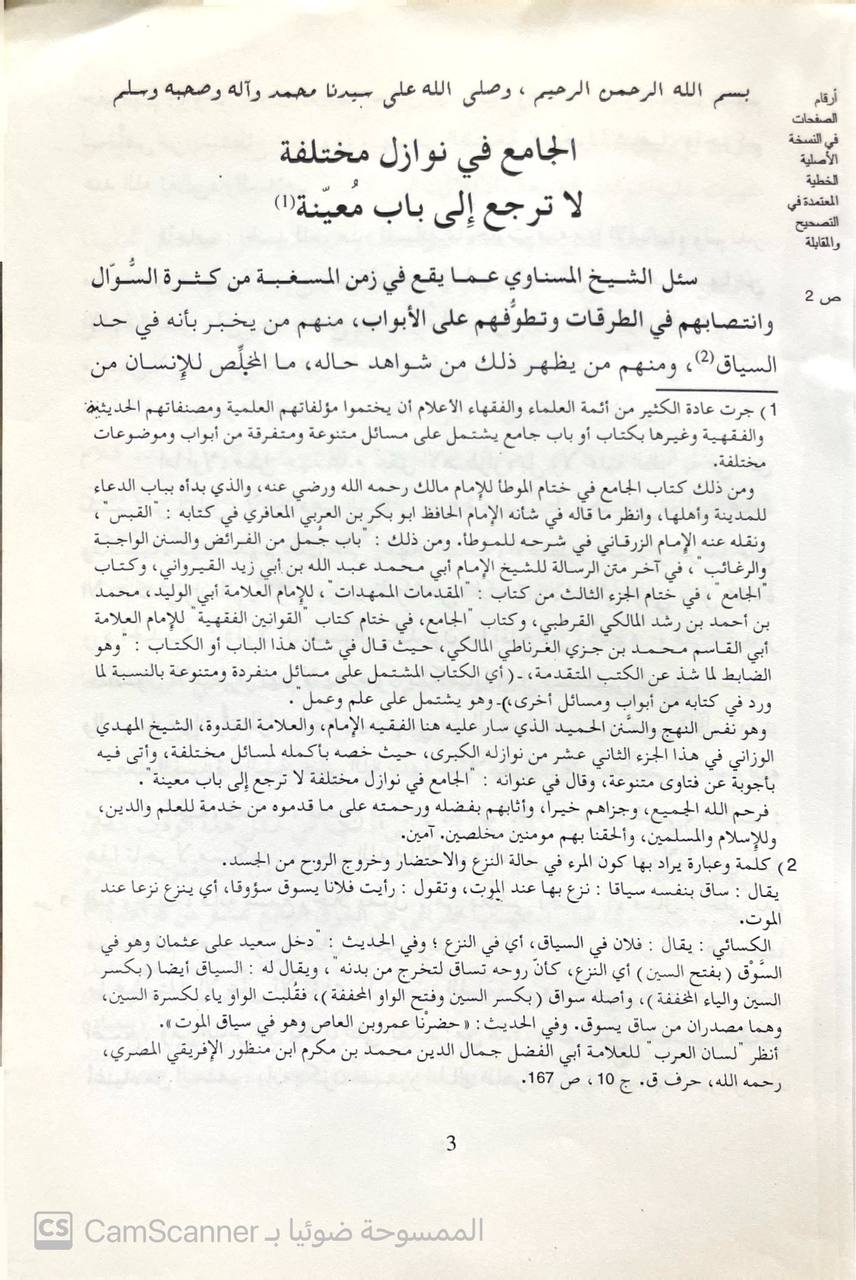 بسم الله الرحمن الرحيم ، وصلى الله على سيدنا محمد وآله وصحبه وسلم
أرقام
الصفحات
في النسخة
الأصلية
الخطية
المعتمدة في
التصحيح
والمقابلة
الجامع في نوازل مختلفة
لا ترجع إلى باب مُعيّنة(1)
ص 2
سئل الشيخ المسناوي عما يقع في زمن المسغبة من كثرة السُّوّال
وانتصابهم في الطرقات وتطوُّفهم على الأبواب، منهم من يخبر بأنه في حد
السياق(2)، ومنهم من يظهر ذلك من شواهد حاله، ما المخلِّص للإنسان من
1) جرت عادة الكثير من أئمة العلماء والفقهاء الأعلام أن يختموا مؤلفاتهم العلمية ومصنفاتهم الحديثية
والفقهية وغيرها بكتاب أو باب جامع يشتمل على مسائل متنوعة ومتفرقة من أبواب وموضوعات
مختلفة.
ومن ذلك كتاب الجامع في ختام الموطأ للإمام مالك رحمه الله ورضي عنه، والذي بدأه بباب الدعاء
للمدينة وأهلها، وانظر ما قاله في شأنه الإمام الحافظ ابو بكر بن العربي المعافري في كتابه : "القبس"،
ونقله عنه الإمام الزرقاني في شرحه للموطأ. ومن ذلك : "باب جُمل من الفرائض والسنن الواجبة
والرغائب"، في آخر متن الرسالة للشيخ الإمام أبي محمد عبد الله بن أبي زيد القيرواني، وكتاب
"الجامع"، في ختام الجزء الثالث من كتاب : "المقدمات الممهدات"، للإمام العلامة أبي الوليد، محمد
بن أحمد بن رشد المالكي القرطبي، وكتاب "الجامع، في ختام كتاب "القوانين الفقهية" للإمام العلامة
أبي القاسم محمد بن جزي الغرناطي المالكي، حيث قال في شأن هذا الباب أو الكتاب : "وهو
الضابط لما شذ عن الكتب المتقدمة، ـ (أي الكتاب المشتمل على مسائل منفردة ومتنوعة بالنسبة لما
ورد في كتابه من أبواب ومسائل أخرى،)ـ وهو يشتمل على علم وعمل".
وهو نفس النهج والسَّنن الحميد الذي سار عليه هنا الفقيه الإمام، والعلامة القدوة، الشيخ المهدي
الوزاني في هذا الجزء الثاني عشر من نوازله الكبرى، حيث خصه بأكمله لمسائل مختلفة، وأتى فيه
بأجوبة عن فتاوى متنوعة، وقال في عنوانه : "الجامع في نوازل مختلفة لا ترجع إلى باب معينة".
فرحم الله الجميع، وجزاهم خيرا، وأثابهم بفضله ورحمته على ما قدموه من خدمة للعلم والدين،
وللإسلام والمسلمين، وألحقنا بهم مومنين مخلصين. آمين.
2) كلمة وعبارة يراد بها كون المرء في حالة النزع والاحتضار وخروج الروح من الجسد.
يقال : ساق بنفسه سياقا : نزع بها عند الموت، وتقول : رأيت فلانا يسوق سؤوقا، أي ينزع نزعا عند
الموت.
الكسائي : يقال : فلان في السياق، أي في النزع ؛ وفي الحديث : "دخل سعيد على عثمان وهو في
السَّوْق (بفتح السين) أي النزع، كأنّ روحه تساق لتخرج من بدنه"، ويقال له : السياق أيضا (بكسر
السين والياء المخففة)، وأصله سواق (بكسر السين وفتح الواو المخففة)، فقُلبت الواو ياء لكسرة السين،
وهما مصدران من ساق يسوق. وفي الحديث : «حضرْنا عمروبن العاص وهو في سياق الموت».
أنظر "لسان العرب" للعلامة أبي الفضل جمال الدين محمد بن مكرم ابن منظور الإفريقي المصري،
رحمه الله، حرف ق. ج 10، ص 167.
3
CS CamScanner الممسوحة ضوئيا بـ